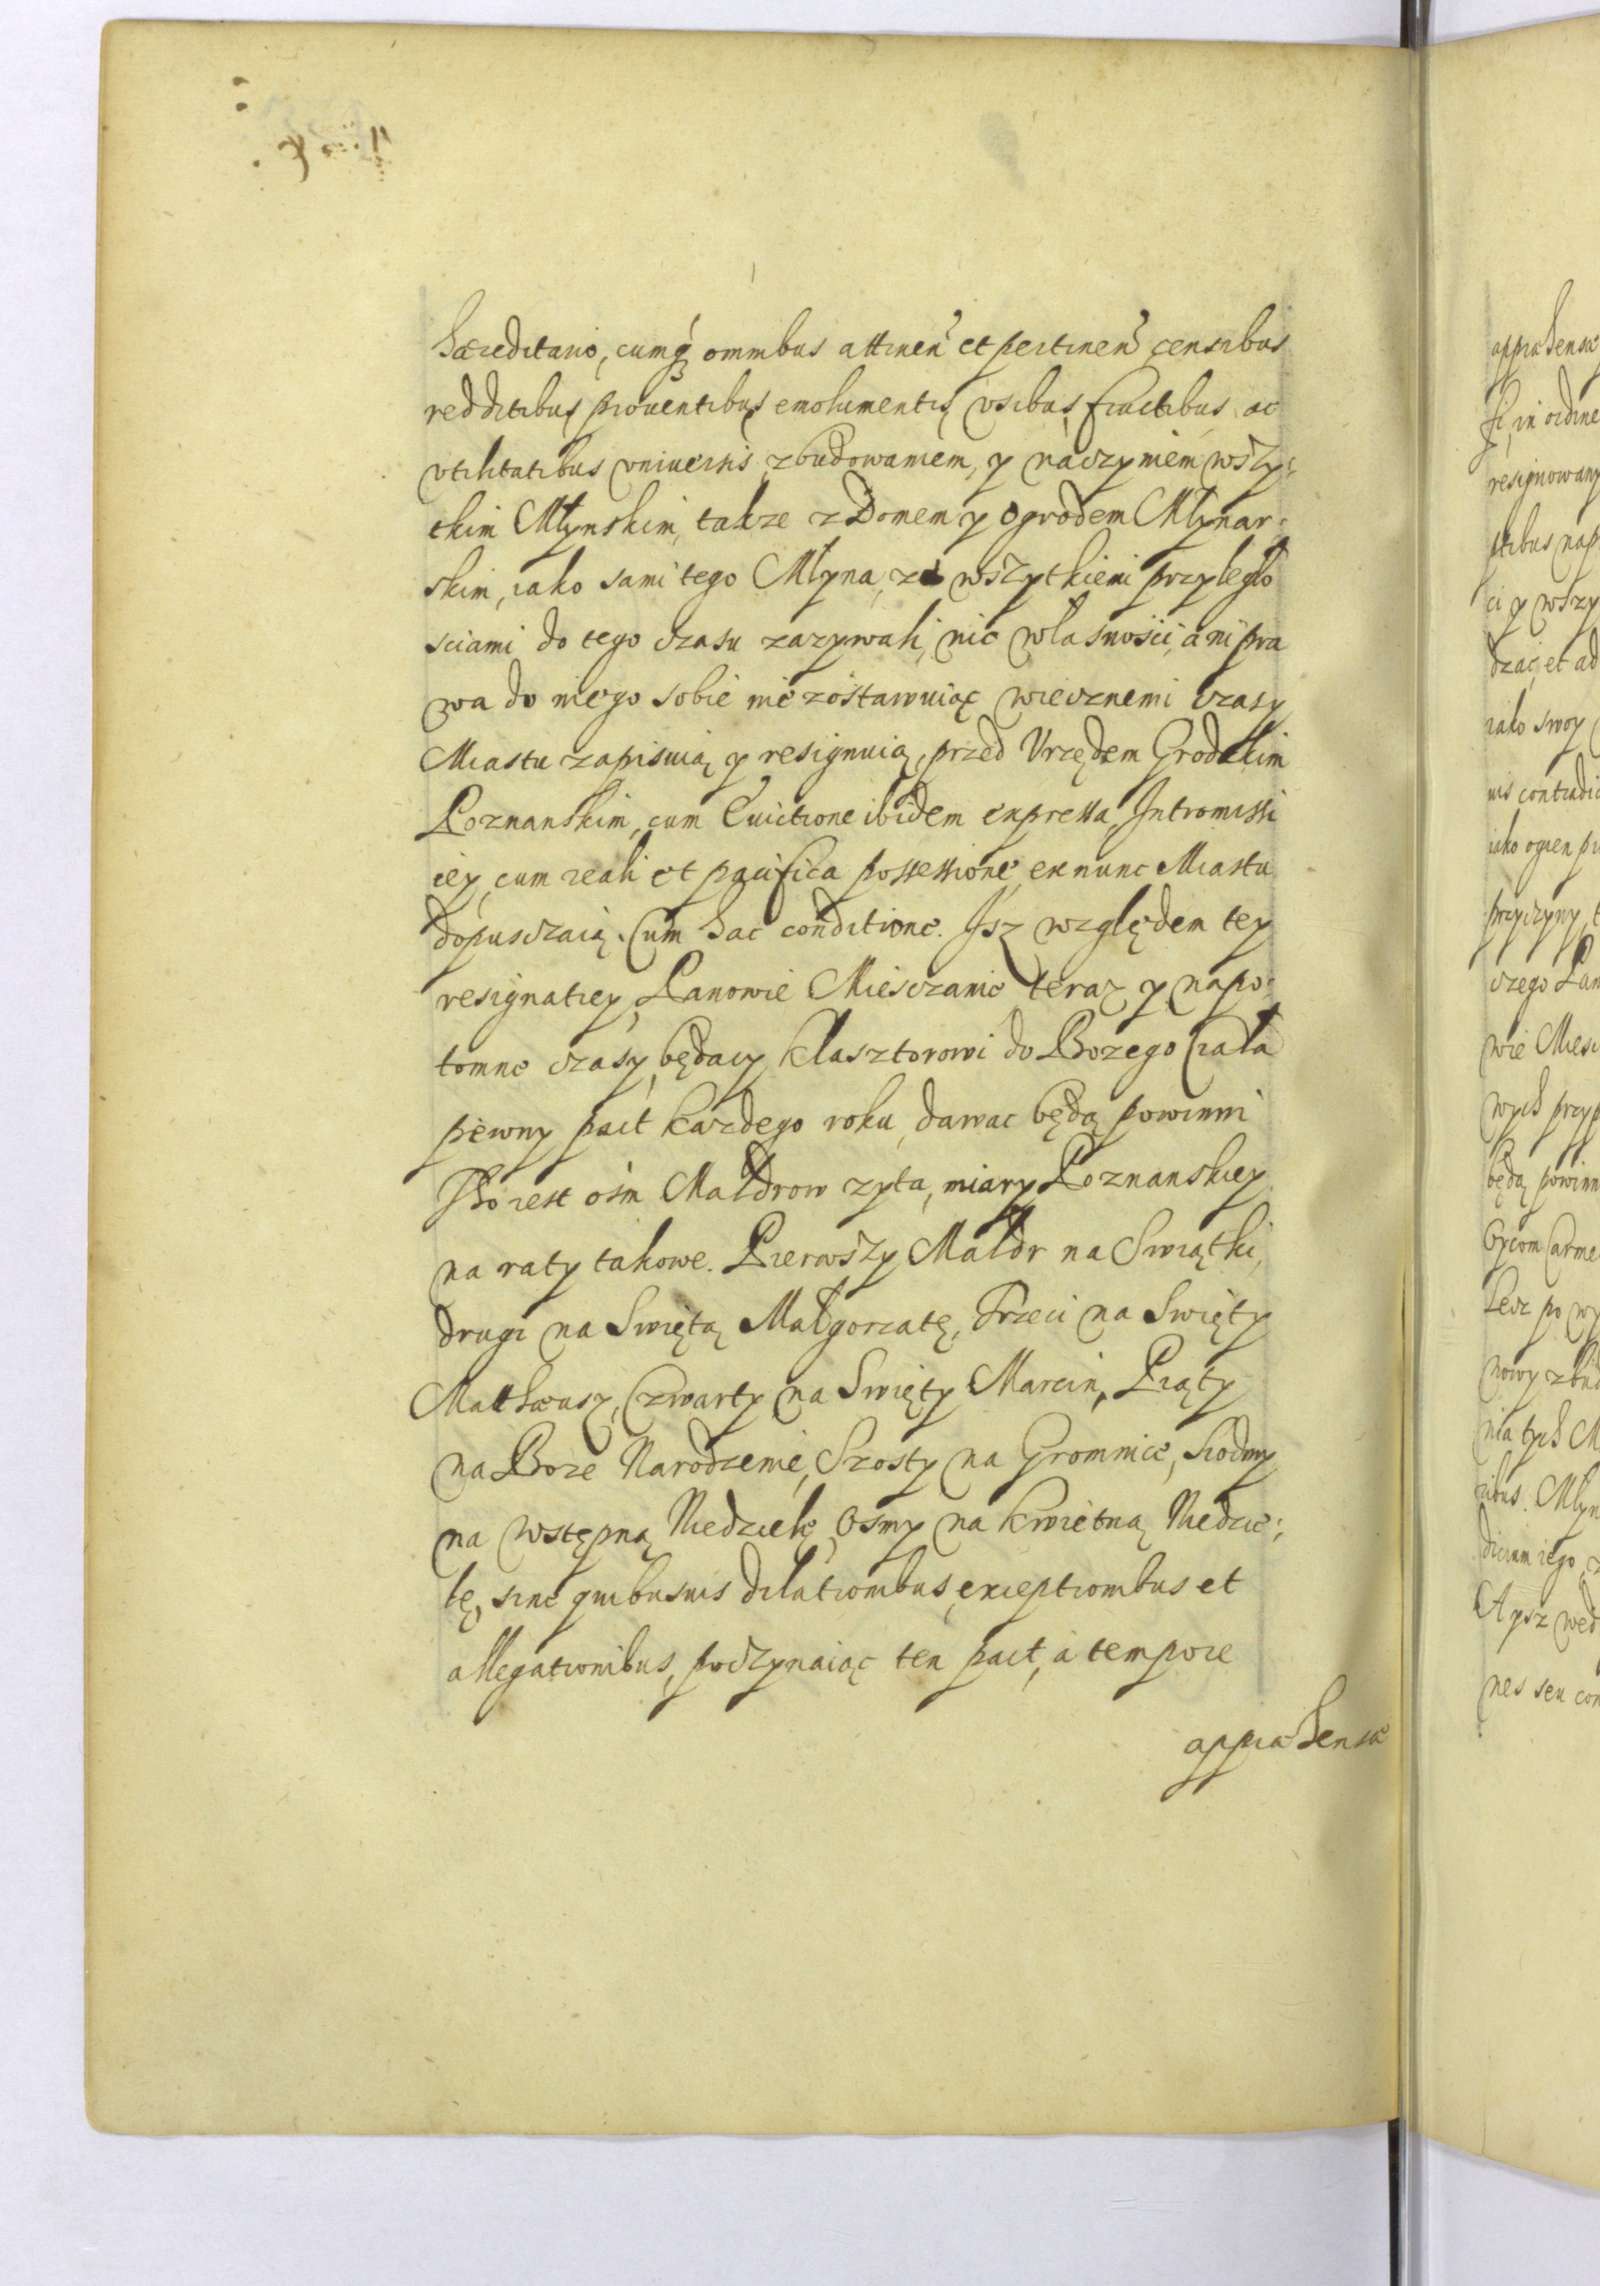 haereditario, cumq́ omnibus attineñ et pertineñ censibus
redditibus prouentibus emolumentis vsibus, fructibus ac
vtilitatibus vniuersis, z budowaniem, y naczyniem wszy:
tkim Młynskim, także z Domem y Ogrodem Młynar:
skim, iako sami tego Młyna, ze wszytkiemi przyległo
sciami do tego czasu zazywali, nic własnosci, ani pra
wa do niego sobie nie zostawuiąc wiecznemi czasy
Miastu zapisuią y resignuią, przed Vrzędem Grodzkim
Poznanskim, cum Euictione ibidem expressa, Intromissi
iey, cum reali et pacifica possessione, ex nunc Miastu
dopusczaią. Cum hac conditione. Isz względem tey
resignatiey, Panowie Miesczanie teraz y napo:
tomne czasy, będący klasztorowi do Bozego Ciała
pewny pact kazdego roku, dawac będą powinni
To iest ośm Małdrow zyta, miary Poznanskiey
na raty takowe. Pierwszy Małdr na Swiątki,
drugi na Swiętą Małgorzatę, Trzeci na Swięty
Mathaeusz, Czwarty na Swięty Marcin, Piąty
na Boze Narodzenie, Szosty na Gromnice, Siodmy
na wstępną Niedzielę, Osmy na kwietną Niedzie:
lę, sine quibusuis dilationibus, exceptionibus et
allegationibus, poczynaiąc ten pact, a tempore
appraehensae

appraehensae
in ordine
resignowany
ci y wszy
dzac, et ad
iako swoy
uis contradic
iako ogien
przyczyny
czego Pan
wie Miesc
wych przyp
będą powinn
Oycom Carme
Lecz po wy
nowy zbud
nia tych M
Młyn
dicium iego
A ysz wed
nes seu con